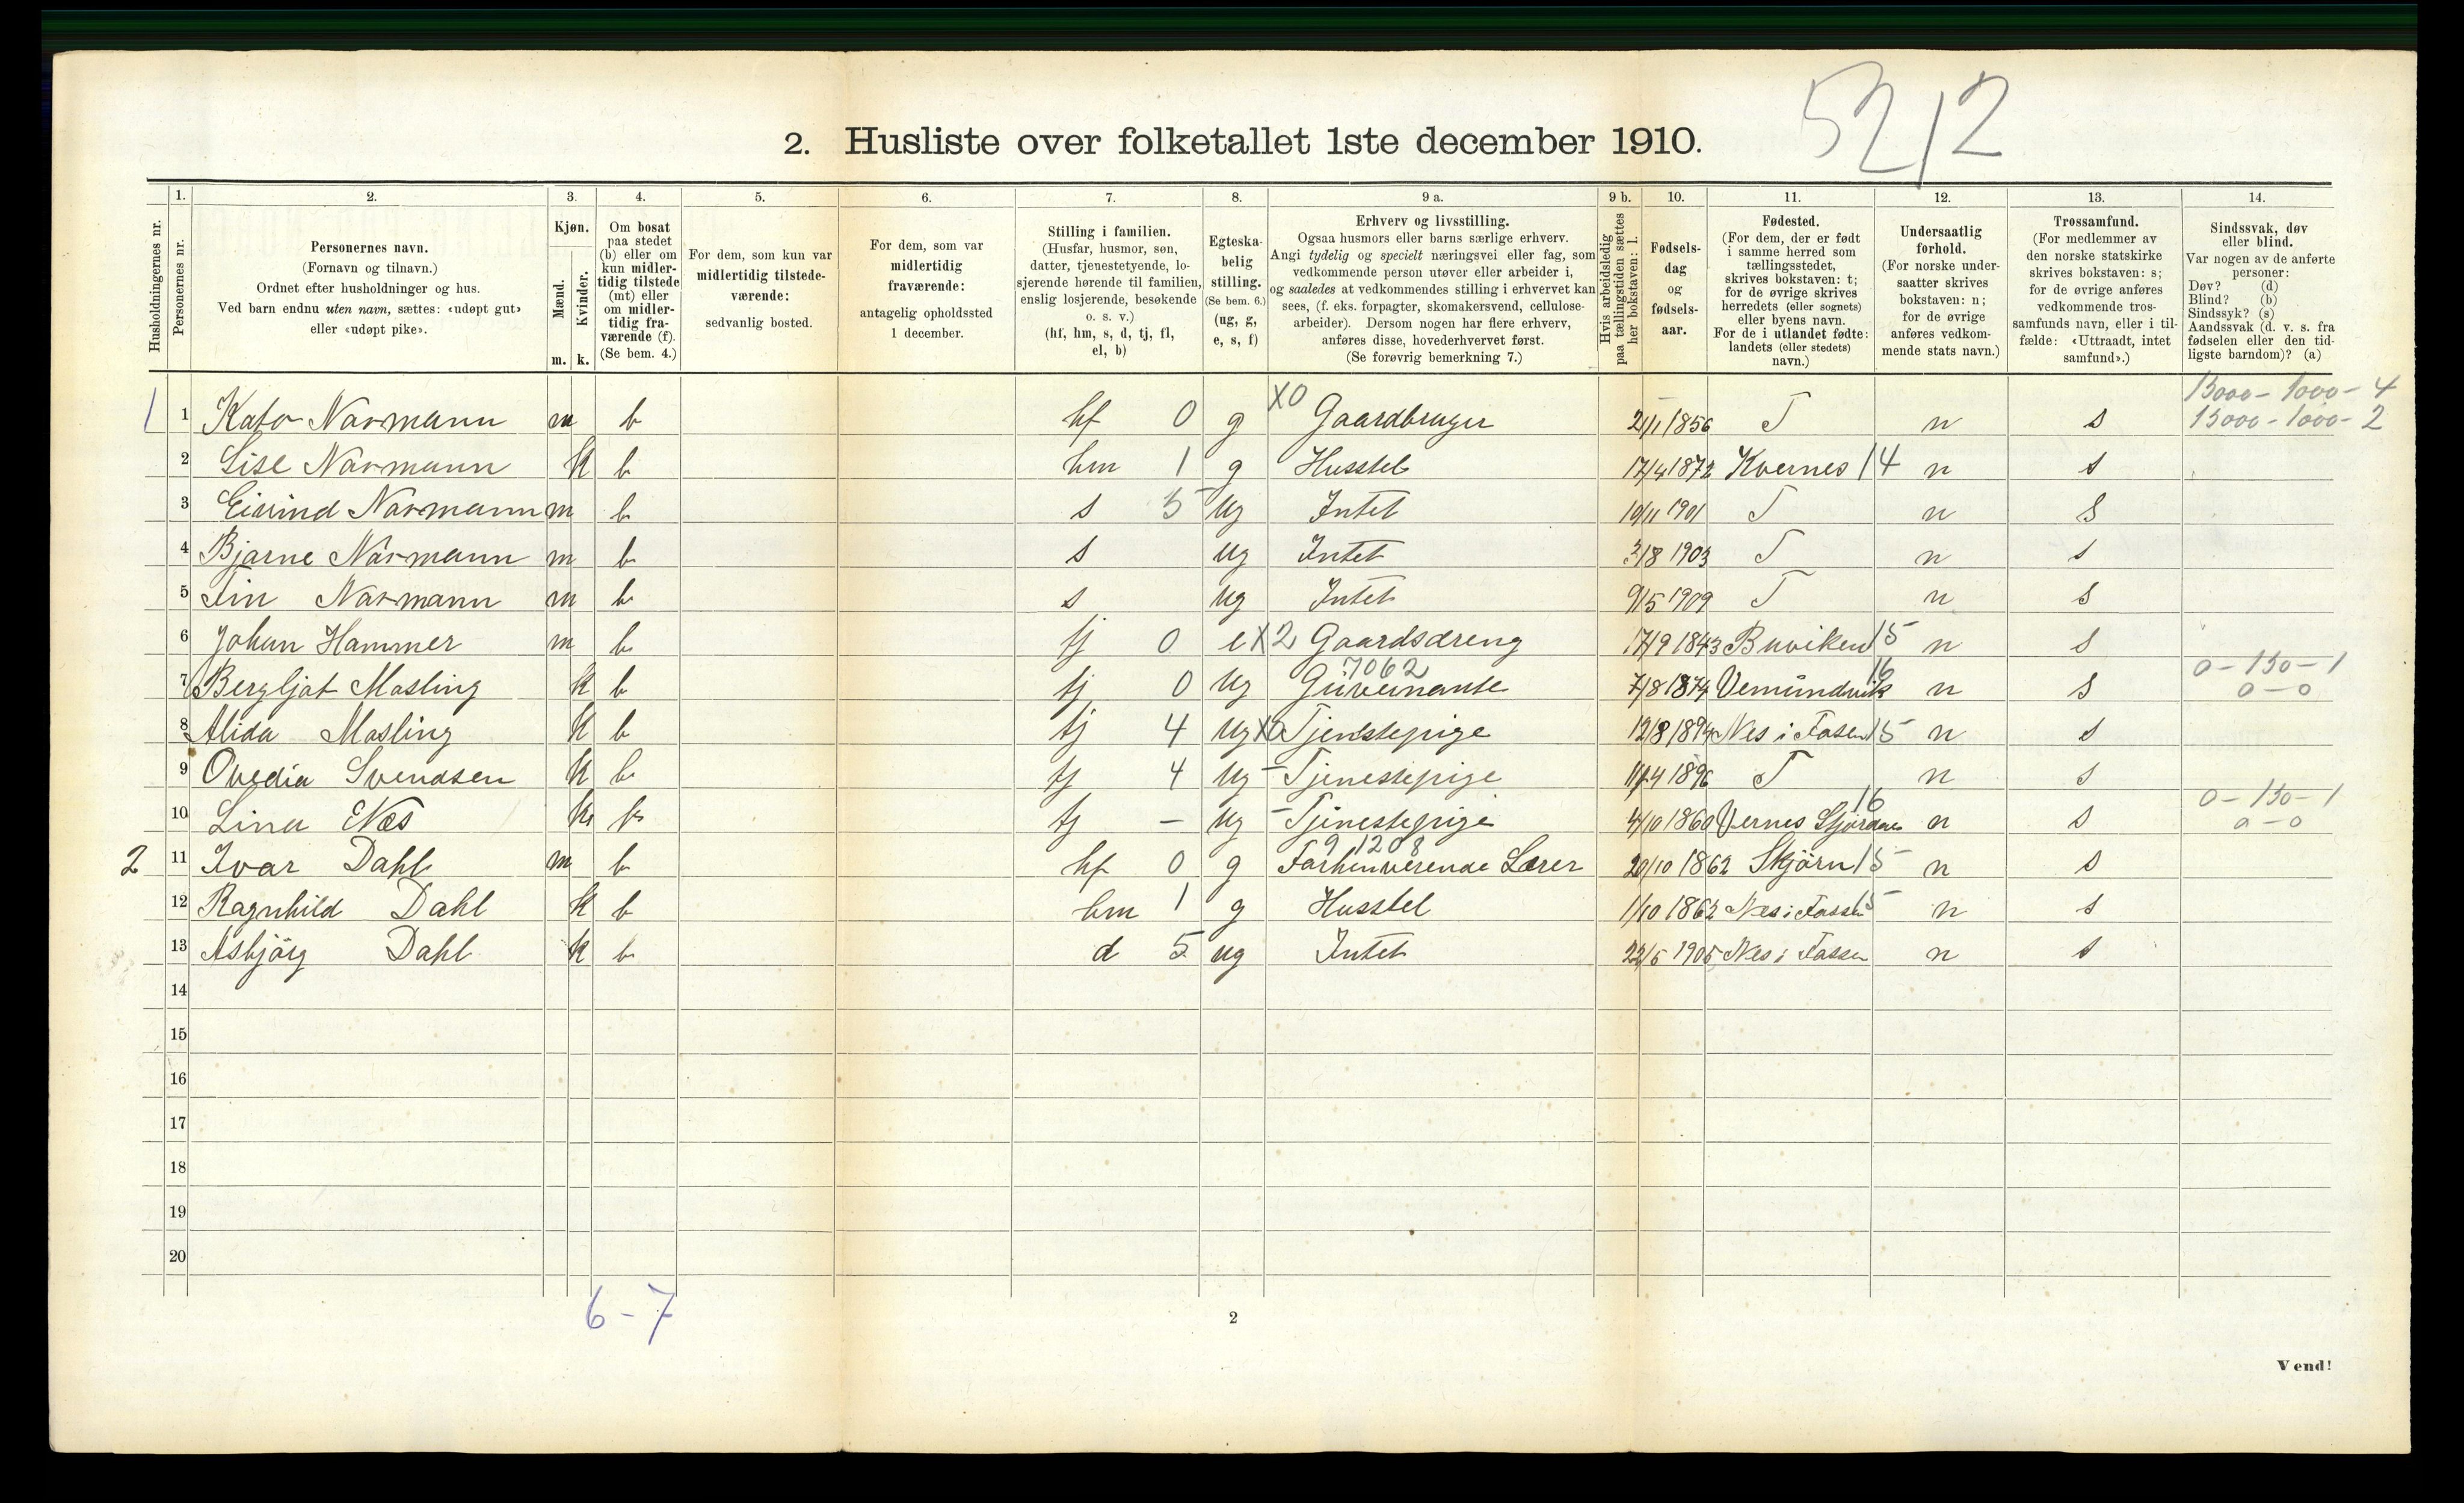 52/2
2. Husliste over folketallet 1ste december 1910.
Husholdningernes nr.
1. Personernes nr.
2. Personernes navn. (Fornavn og tilnavn.) Ordnet efter husholdninger og hus. Ved barn endnu uten navn, sættes: «udøpt gut» eller «udøpt pike».
3. Kjøn. Mænd. m. Kvinder. k.
4. Om bosat paa stedet (b) eller om kun midlertidig tilstede (mt) eller om midlertidig fraværende (f). (Se bem. 4.)
5. For dem, som kun var midlertidig tilstedeværende: sedvanlig bosted.
6. For dem, som var midlertidig fraværende: antagelig opholdssted 1 december.
7. Stilling i familien. (Husfar, husmor, søn, datter, tjenestetyende, losjerende hørende til familien, enslig losjerende, besøkende o. s. v.) (hf, hm, s, d, tj, fl, el, b)
8. Egteskabelig stilling. (Se bem. 6.) (ug, g, e, s, f)
9 a. Erhverv og livsstilling. Ogsaa husmors eller barns særlige erhverv. Angi tydelig og specielt næringsvei eller fag, som vedkommende person utøver eller arbeider i, og saaledes at vedkommendes stilling i erhvervet kan sees, (f. eks. forpagter, skomakersvend, cellulosearbeider). Dersom nogen har flere erhverv, anføres disse, hovederhvervet først. (Se forøvrig bemerkning 7.)
9 b. Hvis arbeidsledig paa tællingstiden sættes her bokstaven: l.
10. Fødselsdag og fødselsaar.
11. Fødested. (For dem, der er født i samme herred som tællingsstedet, skrives bokstaven: t; for de øvrige skrives herredets (eller sognets) eller byens navn. For de i utlandet fødte: landets (eller stedets) navn.)
12. Undersaatlig forhold. (For norske undersaatter skrives bokstaven: n; for de øvrige anføres vedkommende stats navn.)
13. Trossamfund. (For medlemmer av den norske statskirke skrives bokstaven: s; for de øvrige anføres vedkommende trossamfunds navn, eller i tilfælde: «Uttraadt, intet samfund».)
14. Sindssvak, døv eller blind. Var nogen av de anførte personer: Døv? (d) Blind? (b) Sindssyk? (s) Aandssvak (d. v. s. fra fødselen eller den tidligste barndom)? (a)
15000 - 1000 - 4
1 1 Kato Normann m b hf 0 g X0 Gaardbruger 21/1 1856 T n s 15000 - 1000 - 2
2 Lise Normann k b hm 1 g Husstel 17/4 1872 Kvernes 14 n s
3 Eivind Normann m b s 5 ug Intet 10/11 1901 T n s
4 Bjarne Normann m b s ug Intet 3/8 1903 T n s
5 Fin Normann m b s ug Intet 9/5 1909 T n s
6 Johan Hammer m b tj 0 e X2 Gaardsdreng 17/9 1843 Buviken 15 n s
7062 16 0 - 150 - 1
7 Bergljot Masling k b tj 0 ug Guvernante 7/8 1874 Vemundvik n s 0 - 0
8 Alida Masling k b tj 4 ug Tjenstepige 12/8 1894 Nes i Fosen 15 n s
9 Ovedia Svendsen k b tj 4 ug - Tjenestepige 11/4 1896 T n s
16 0 - 150 - 1
10 Lina Næs k b tj - ug - Tjenestepige 4/10 1860 Vernes Stjørdalen n s 0 - 0
9 1208
2 11 Ivar Dahl m b hf 0 g Forhenverende Lærer 20/10 1862 Skjörn 15 n s
12 Ragnhild Dahl k b hm 1 g Husstel 1/10 1862 Nes i Fossen 15 n s
13 Asbjörg Dahl k b d 5 ug Intet 22/5 1905 Nes i Fossen n s
14
15
16
17
18
19
20
6 - 7
2
Vend!